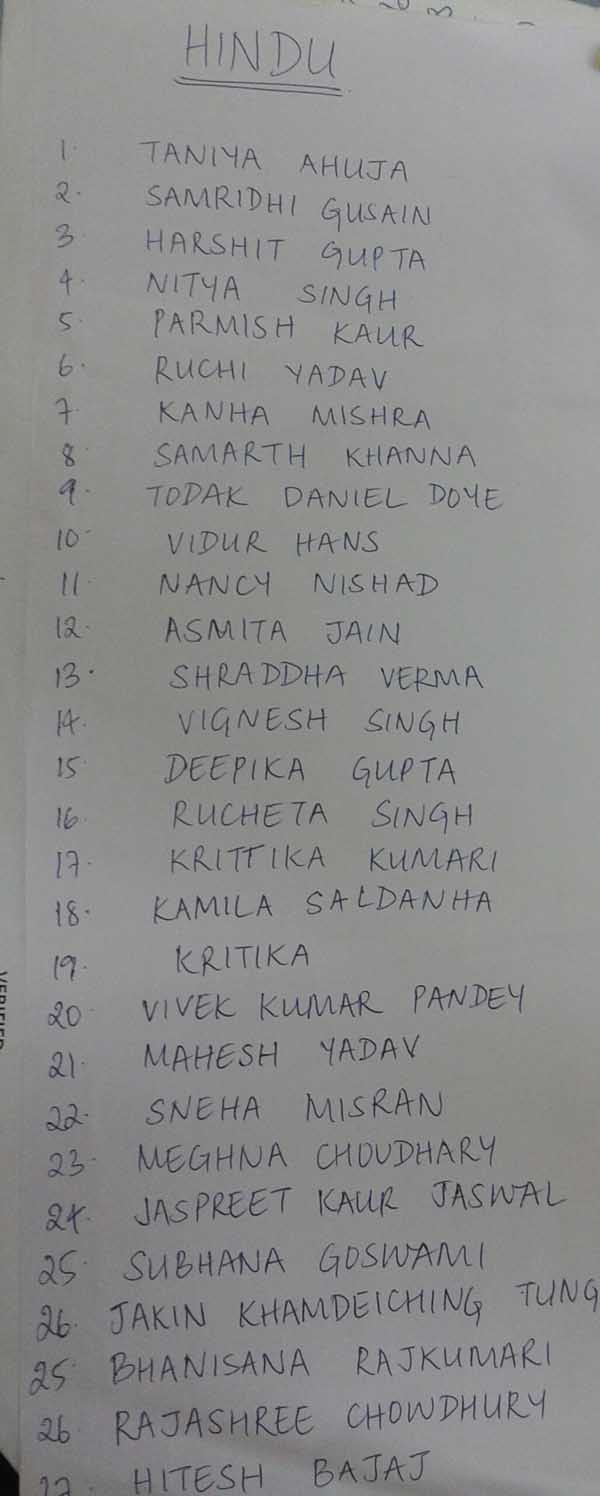 HINDU
1. TANIYA AHUJA
2. SAMRIDHI GUSAIN
3 HARSHIT GUPTA
4. NITYA SINGH
5. PARMISH KAUR
6. RUCHI YADAV
7. KANHA MISHRA
8 SAMARTH KHANNA
9. TODAK DANIEL DOYE
10 VIDUR HANS
11. NANCY NISHAD
12. ASMITA JAIN
13. SHRADDHA VERMA
14. VIGNESH SINGH
15 DEEPIKA GUPTA
16. RUCHETA SINGH
17. KRITTIKA KUMARI
18. KAMILA SALDANHA
19. KRITIKA
20. VIVEK KUMAR PANDEY
21. MAHESH YADAV
22. SNEHA MISRAN
23. MEGHNA CHOUDHARY
24. JASPREET KAUR JASWAL
25. SUBHANA GOSWAMI
26. JAKIN KHAMDEICHING TUNG
25 BHANISANA RAJKUMARI
26 RAJASHREE CHOWDHURY
27. HITESH BAJAJ